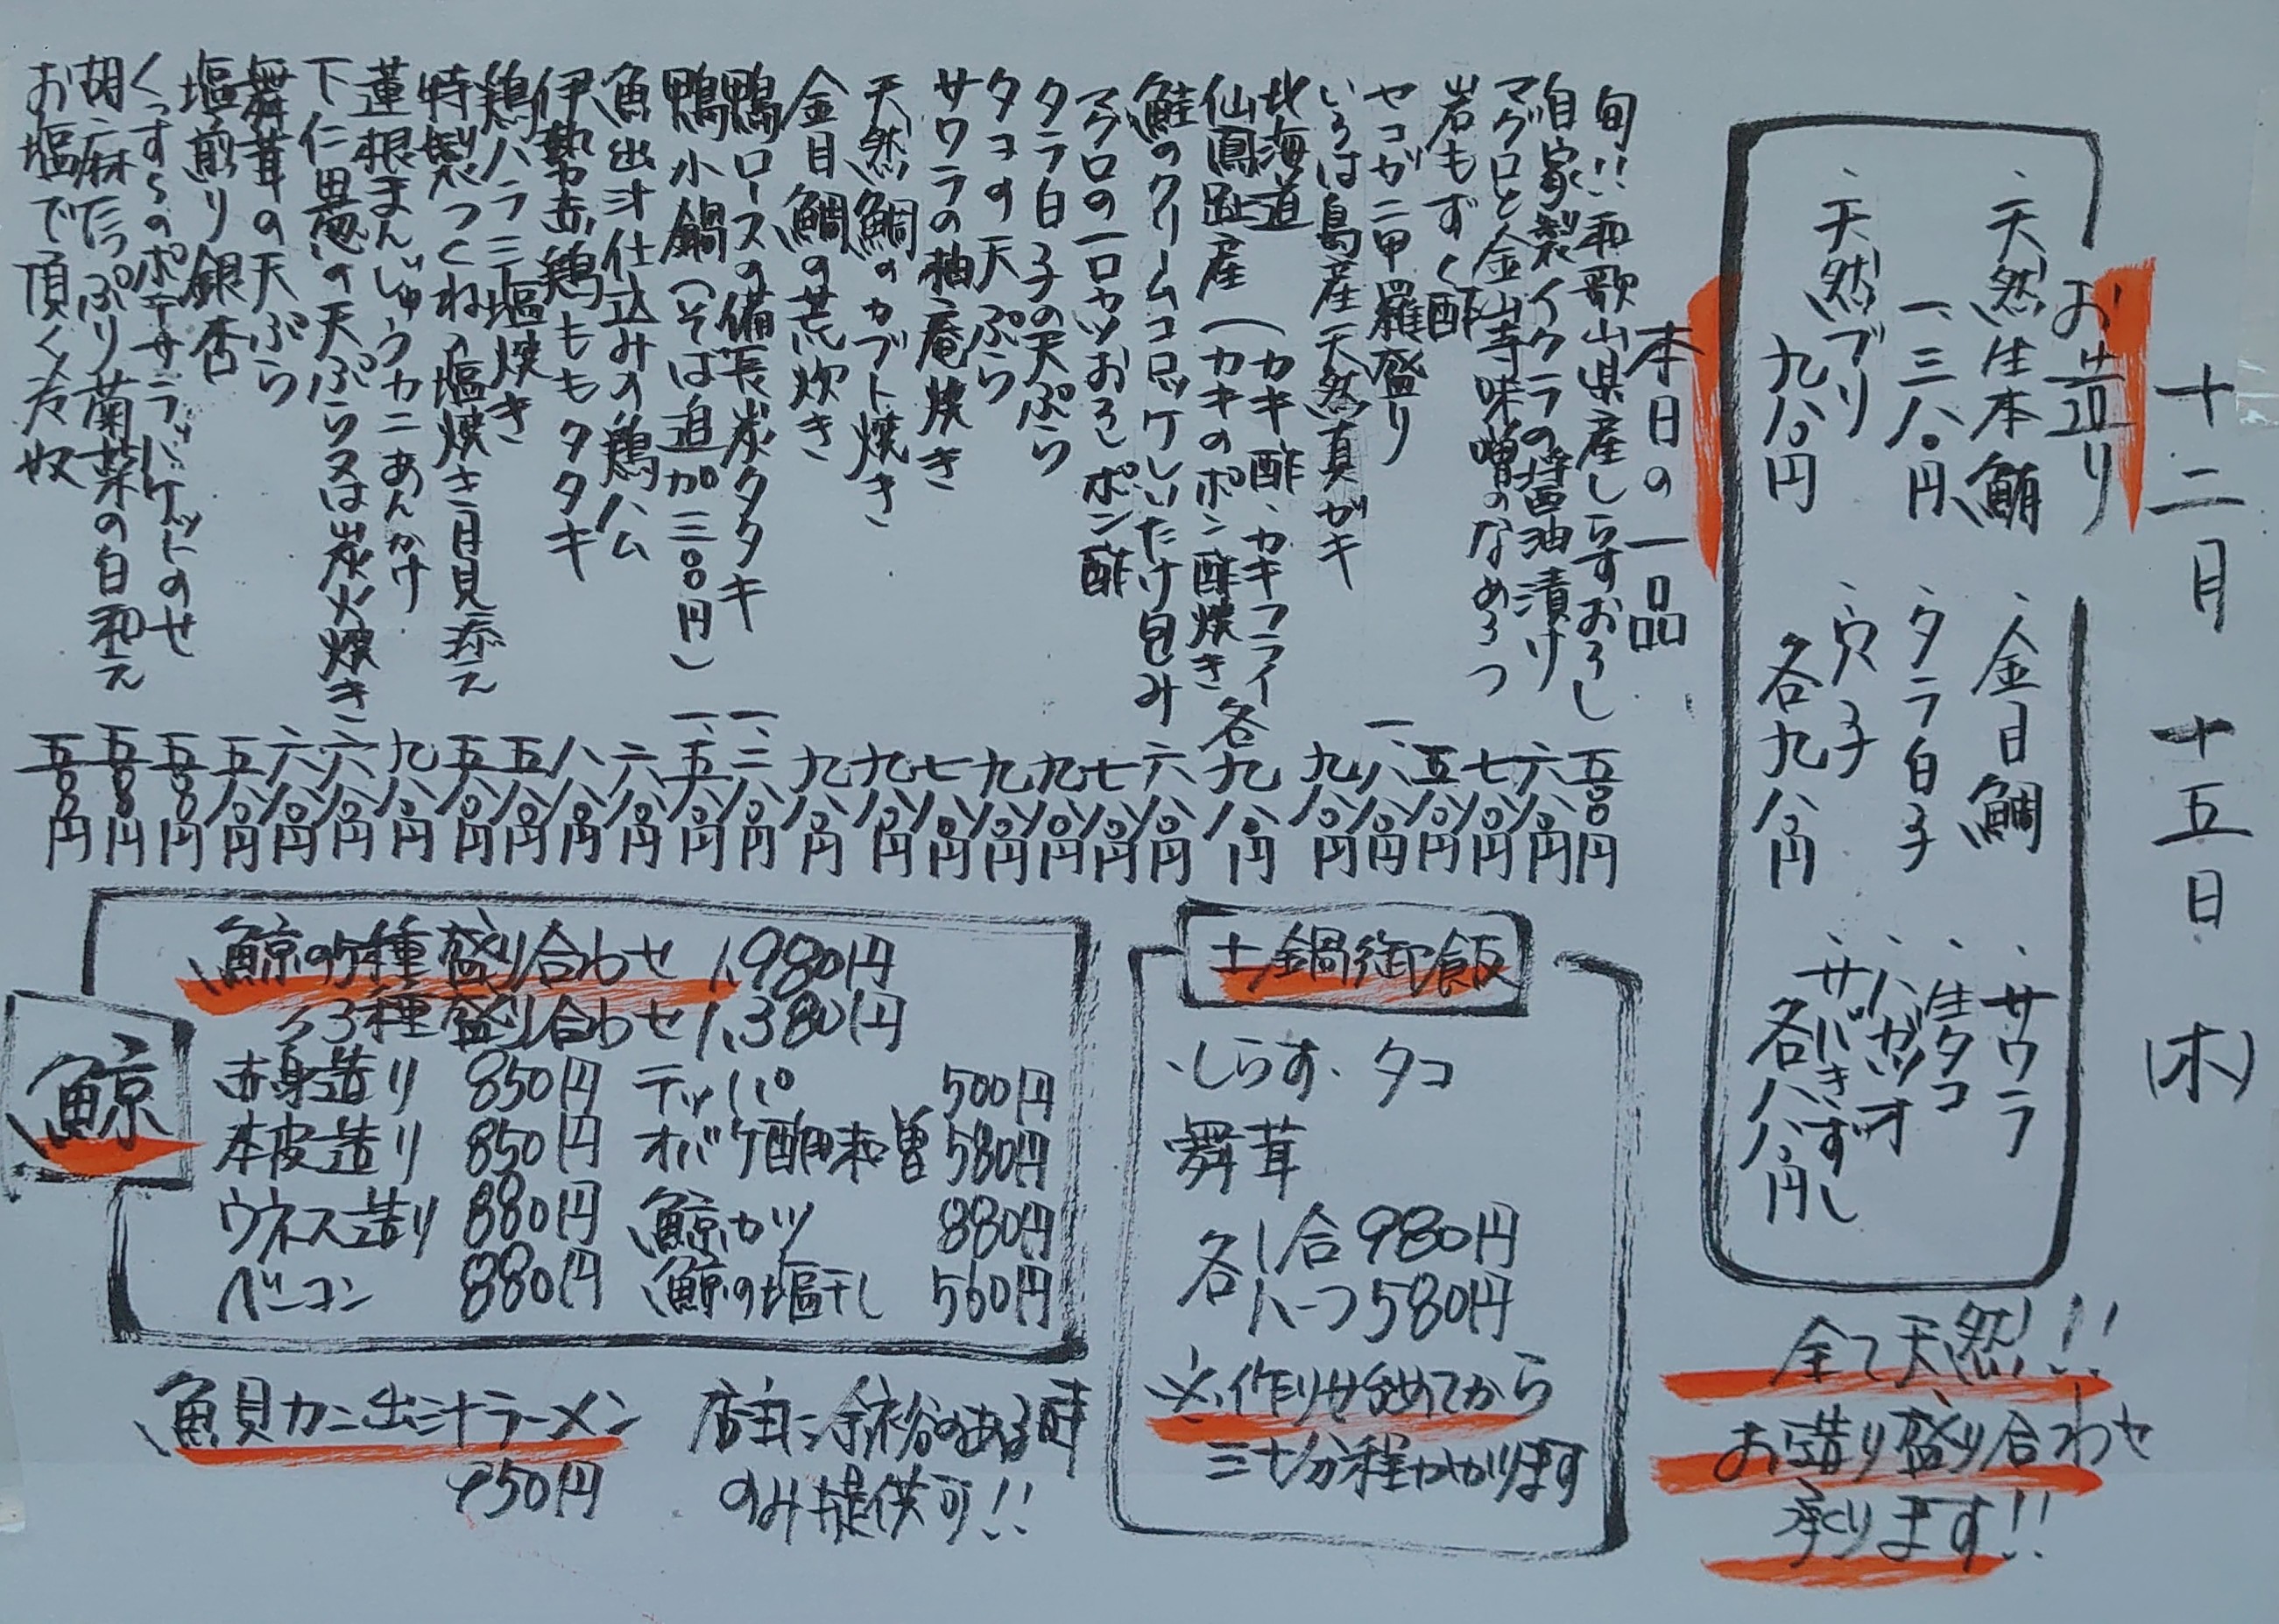 十二月 十五日 (木)
お造り
・天然生本鮪
一、三八〇円
・天然ブリ
九八〇円
・金目鯛
・タラ白子
・穴子
各九八〇円
・サワラ
・生タコ
・ハガツオ
・サバきずし
各八八〇円
全て天然!!
お造り盛り合わせ
承ります!!
本日の一品
旬!!和歌山県産しらすおろし 五〇〇円
自家製イクラの醤油漬け 六八〇円
マグロと金山寺味噌のなめろう 七八〇円
岩もずく酢 五八〇円
セコガニ甲羅盛り 一、八八〇円
いろは島産天然真ガキ 九八〇円
北海道
仙鳳趾産(カキ酢、カキフライ
(カキのポン酢焼き 各九八〇円
鮭のクリームコロッケしいたけ包み 六八〇円
マグロの一口カツおろしポン酢 七八〇円
タラ白子の天ぷら 九八〇円
タコの天ぷら 九八〇円
サワラの柚庵焼き 七八〇円
天然鯛のカブト焼き 九八〇円
金目鯛の荒炊き 九八〇円
鴨ロースの備長炭タタキ 一、二八〇円
鴨小鍋(そば追加三〇〇円) 一、五八〇円
魚出汁仕込みの鶏ハム 六八〇円
伊勢赤鶏ももタタキ 八八〇円
鶏ハラミ塩焼き 五八〇円
特製つくねの塩焼き月見添え 五八〇円
蓮根まんじゅうカニあんかけ 九八〇円
下仁田葱の天ぷら又は炭火焼き 六八〇円
舞茸の天ぷら 六八〇円
塩煎り銀杏 五八〇円
くんすらのポテサラバケットのせ 五〇〇円
胡麻たっぷり菊菜の白和え 五〇〇円
お塩で頂く冷奴 五〇〇円
土鍋御飯
・しらす・タコ
舞茸
各1合980円
各ハーフ580円
※作り始めてから
三十分程かかります
鯨
鯨の5種盛り合わせ 1,980円
〃3種盛り合わせ 1,380円
赤身造り 850円 テッパ 500円
本皮造り 850円 オバケ酢味噌 580円
ウネス造り 880円 鯨カツ 880円
ベーコン 880円 鯨の塩干し 560円
魚貝カニ出汁ラーメン
950円
店主に余裕のある時
のみ提供可!!